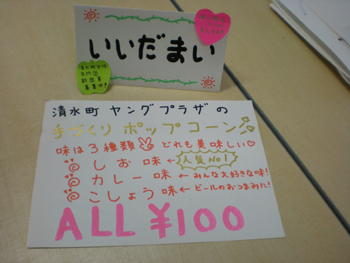 いいだまい
清水町 ヤングプラザの
手づくり ポップコーン♪
味は3種類 どれも美味しい♡
しお 味 ← 人気No1
カレー 味 ← みんな大好きな味!
こしょう 味 ← ビールのおつまみに!
ALL ¥100